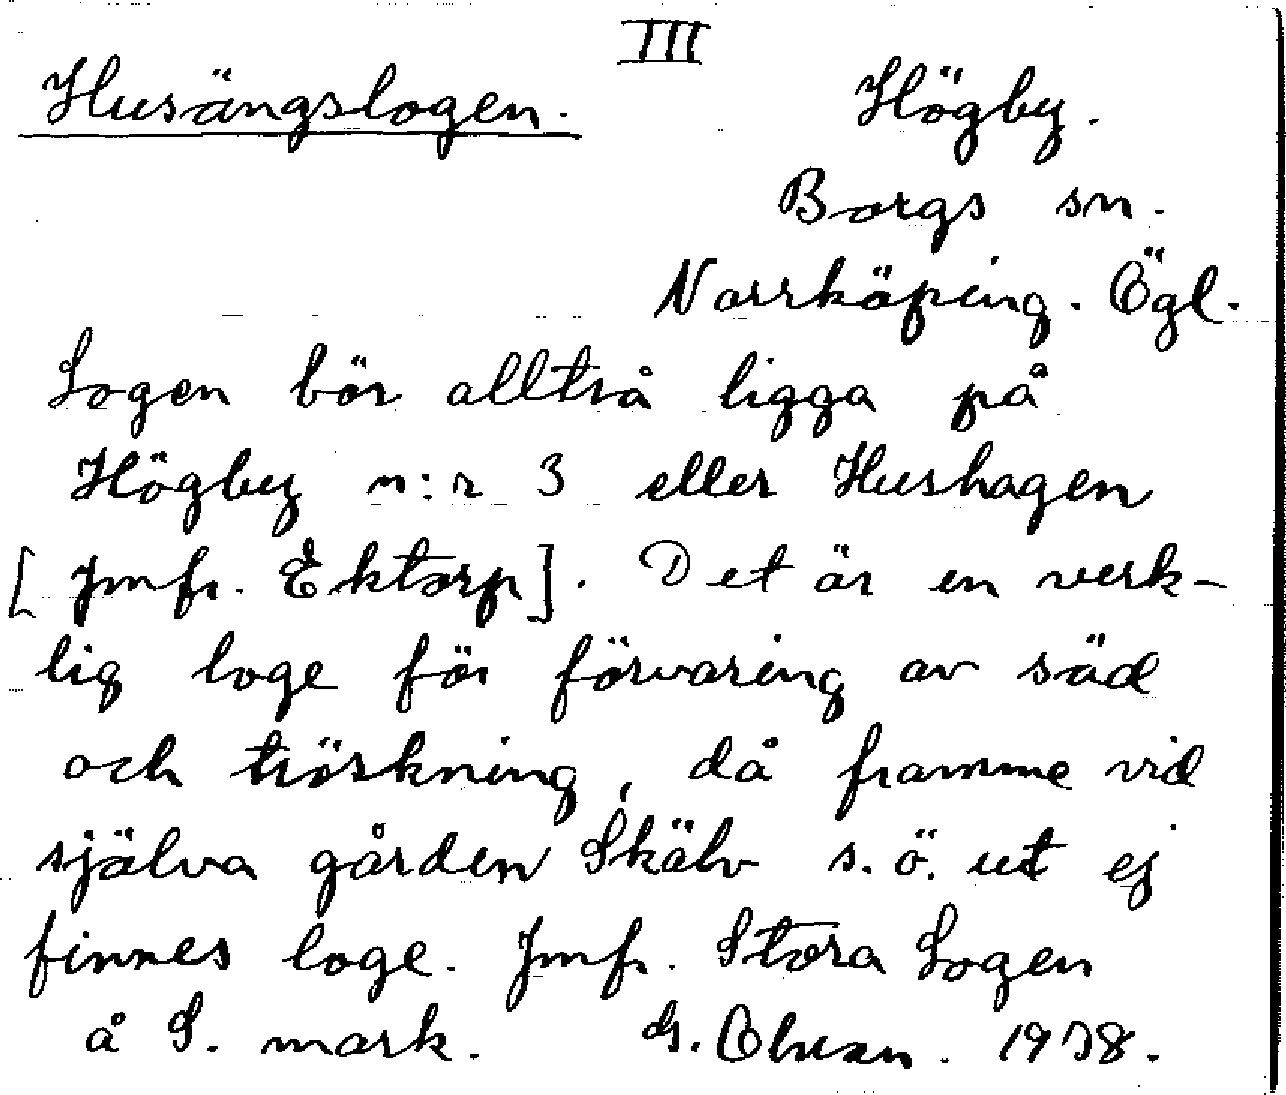 III
Husängslogen. Högby.
Borgs sn.
Norrköping. Ögl.
Logen bör alltså ligga på
Högby n:r 3 eller Hushagen
[Jmfr. Ektorp]. Det är en verk-
lig loge för förvaring av säd
och tröskning, då framme vid
själva gården Skälv s.ö. ut ej
finnes loge. Jmfr. Stora Logen
å S. mark. G. 1938.